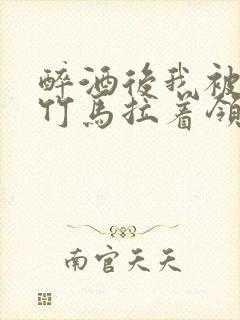 醉酒後我被
竹馬拉着領
南官天天